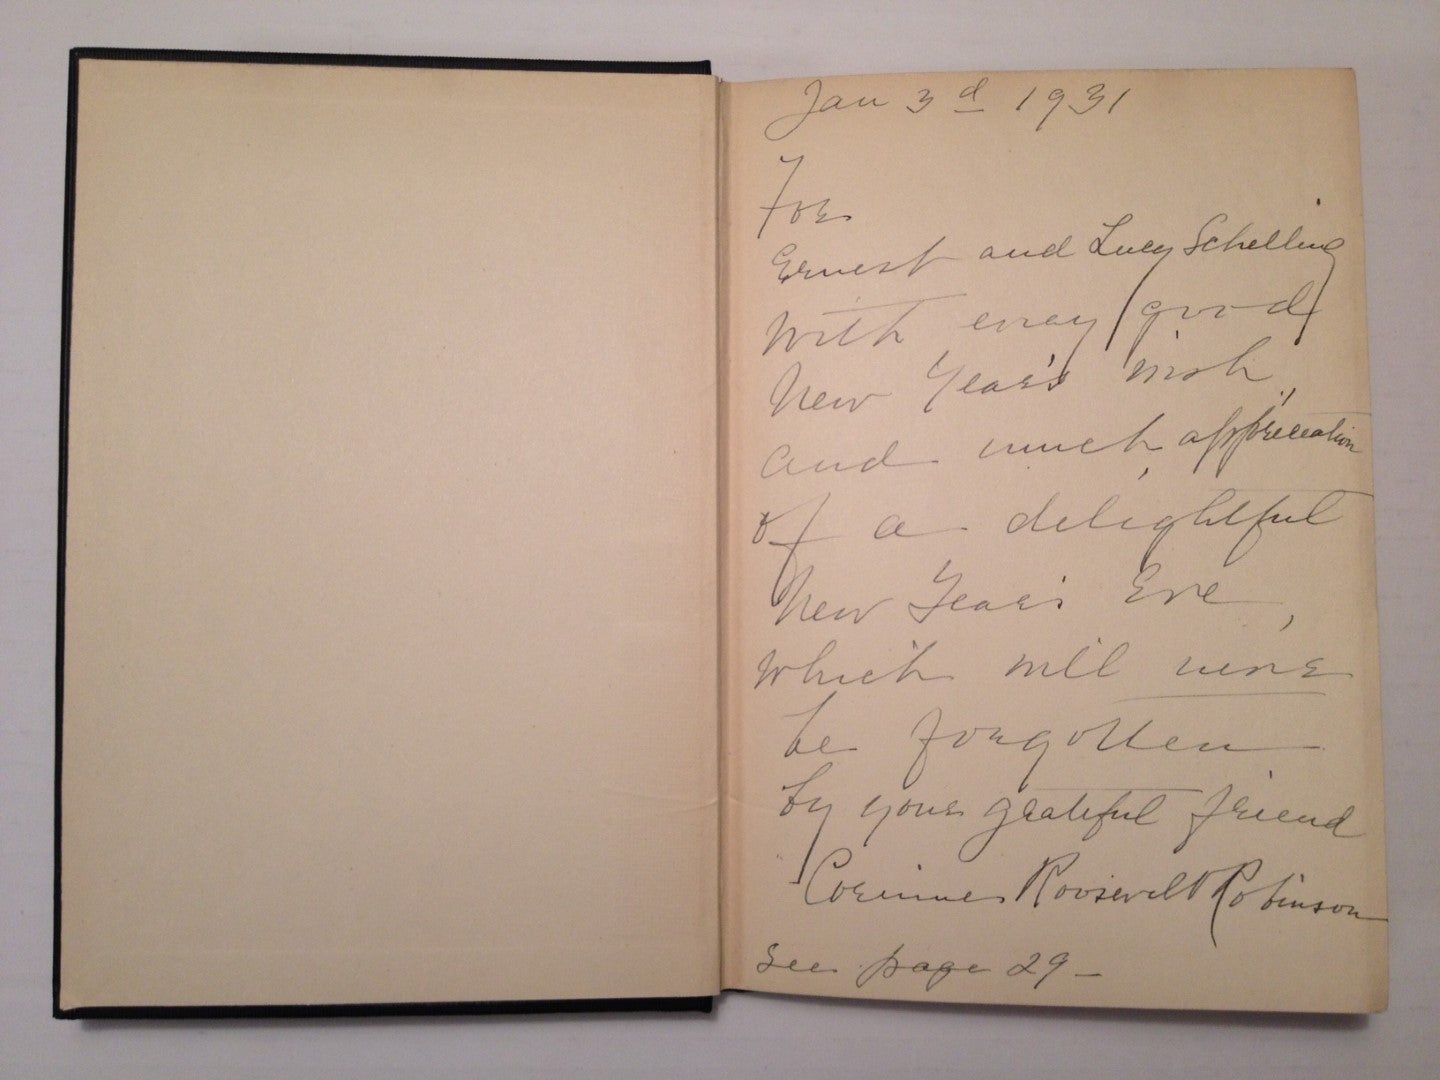 Jan 3d 1931
For
Ernest and Lucy Schelling
with every good
New Year's wish,
and much appreciation
of a delightful
New Year's Eve,
which will never
be forgotten
by your grateful friend
Corinne Roosevelt Robinson
see page 29-